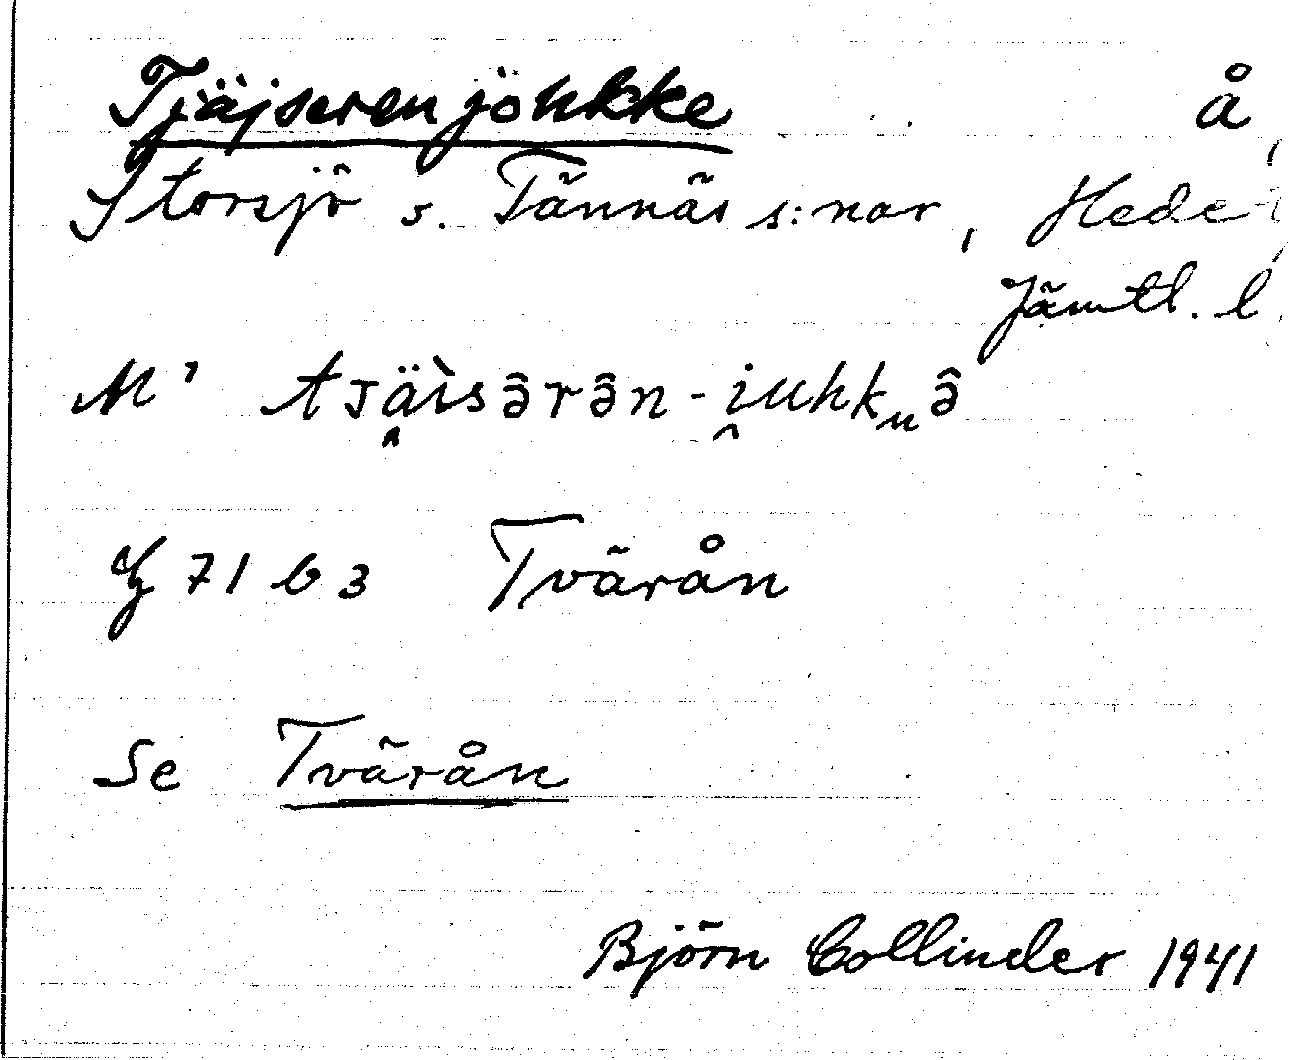 Tjäjserenjohkke å
Storsjö s. Tännäs s:nar, Hede
Jämtl. l.
M'
71 b 3 Tvärån
Se Tvärån
Björn Collinder 1941